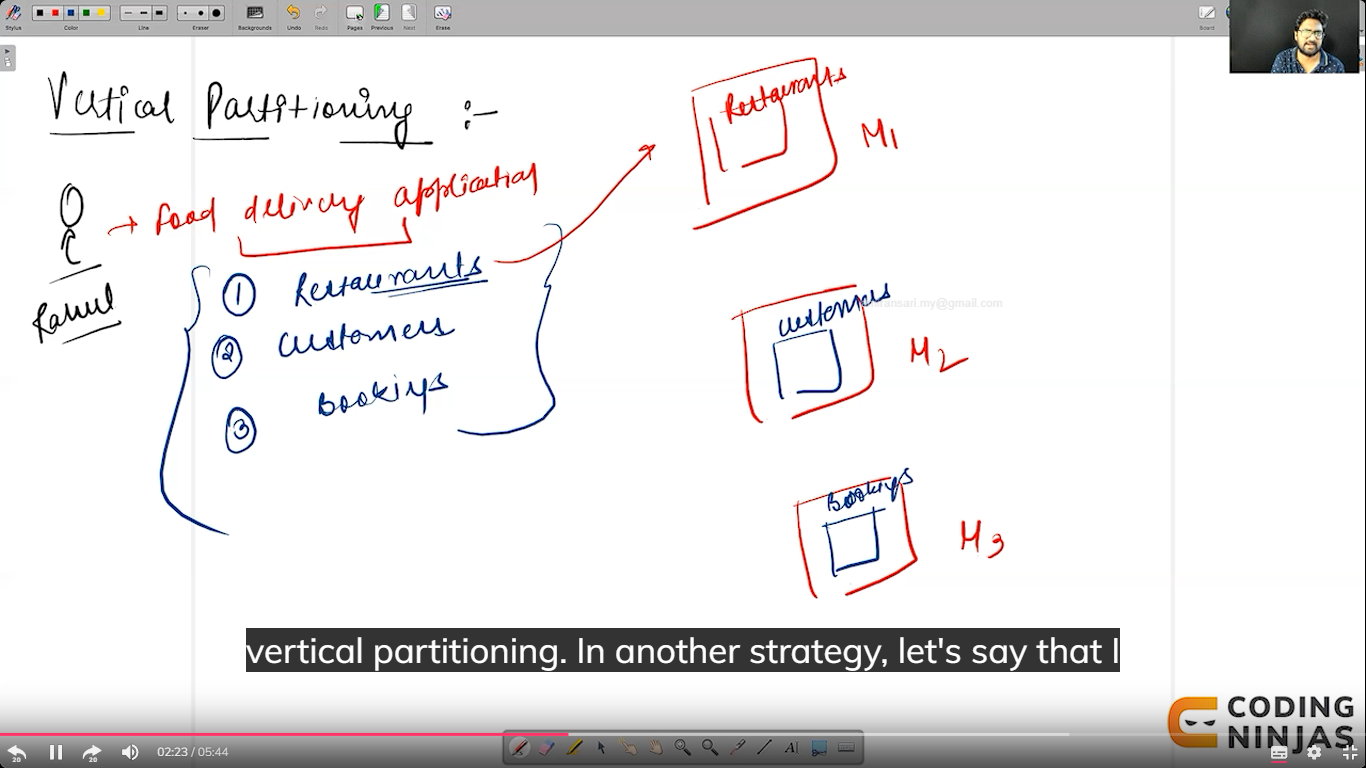 Stylus
Color
Line
Eraser
Backgrounds
Undo
Redo
Pages
Previous
Next
Erase
Board
Vertical Partitioning :-
Restaurants
M1
→ Food delivery application
Rahul
1 Restaurants
2 Customers
3 Bookings
Customers
ansari.my@gmail.com
M2
Bookings
M3
vertical partitioning. In another strategy, let's say that I
CODING
NINJAS
20
20
02:23 / 05:44